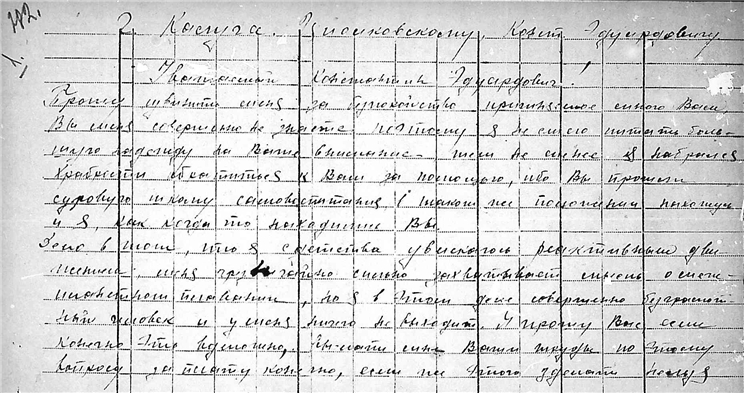 292.
г Калуга. Циолковскому. Конст. Эдуардовичу
1.
Уважаемый Константин Эдуардович!
Прошу извинить меня за безпокойство причиняемое мною Вам
Вы меня совершенно не знаете поэтому я не смею питать боль-
шую надежду на Ваше внимание - тем не менее я набрался
храбрости обратиться к Вам за помощью, ибо Вы прошли
суровую школу самовоспитания в таком же положении нахожусь
и я, как когда то находились Вы.
Дело в том, что я с детства увлекаюсь реактивным дви-
жением, меня чрезвычайно сильно захватывает мысль о меж-
планетном плавании, но я в этом деле совершенно безграмот-
ный человек и у меня ничего не выходит. Я прошу Вас если
конечно это возможно, выслать мне Ваши труды по этому
вопросу за плату конечно, если же этого сделать нельзя